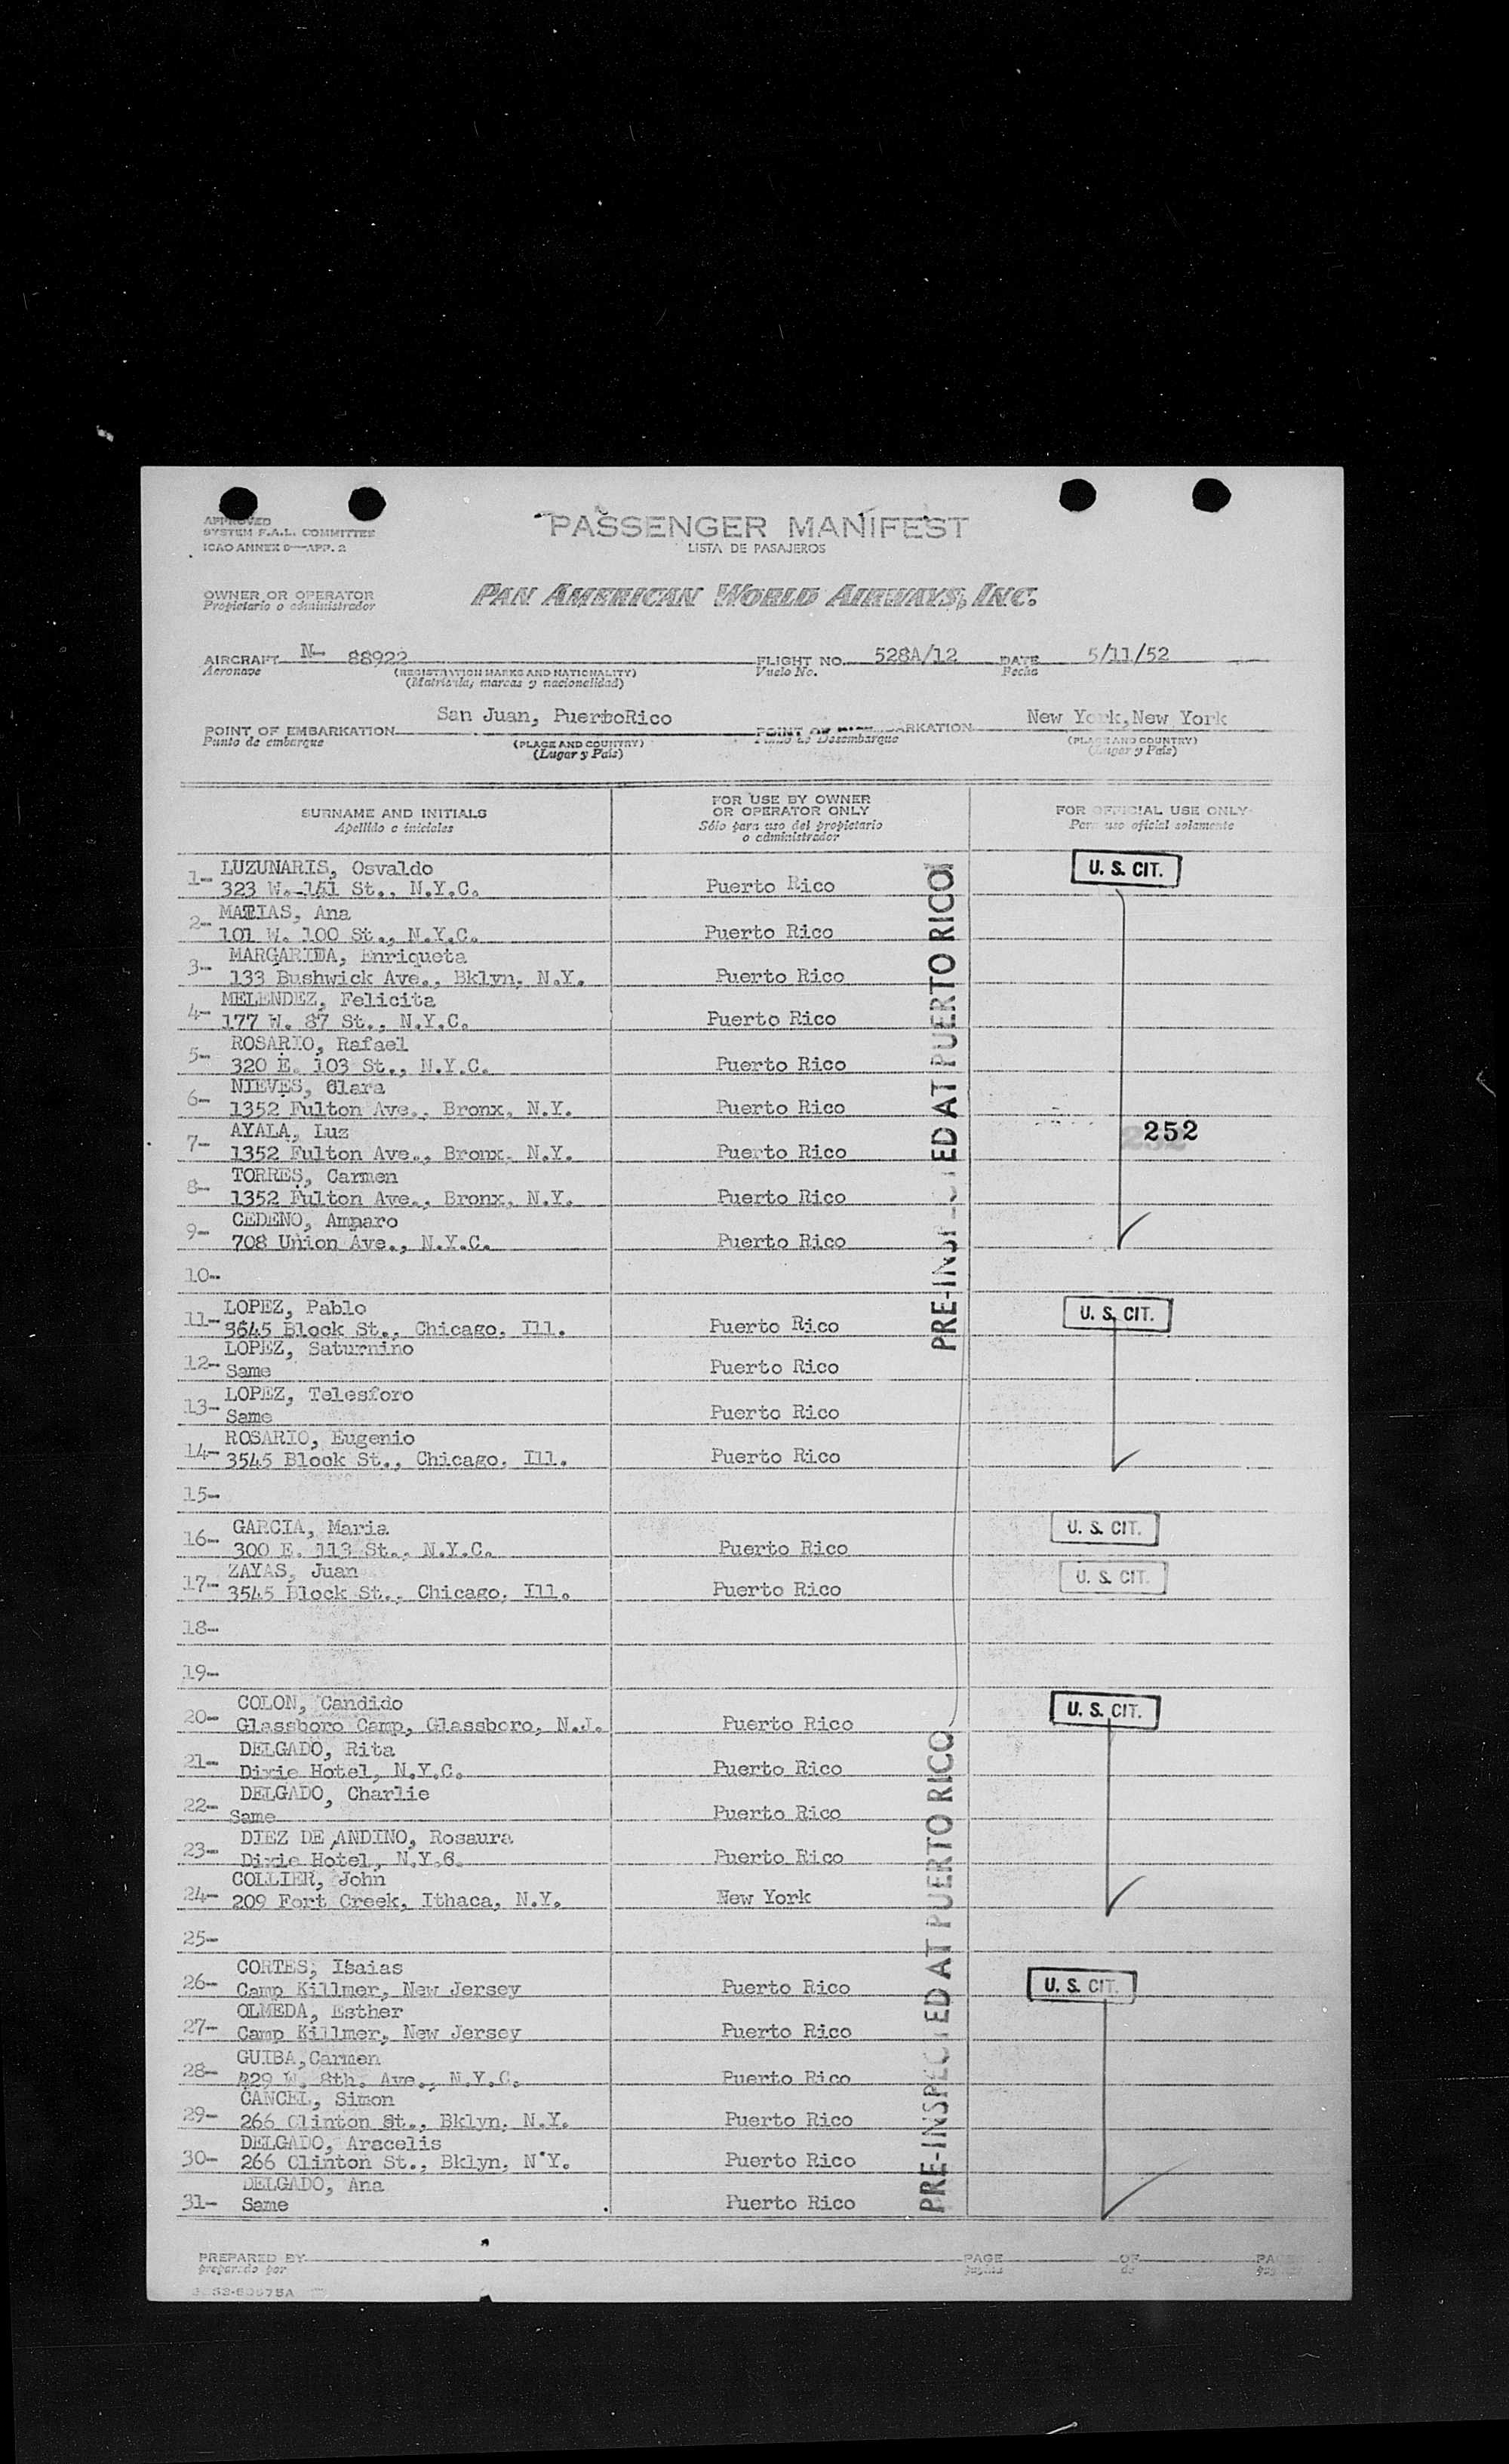 APPROVED
SYSTEM F.A.L. COMMITTEE
ICAO ANNEX 9—APP. 2
PASSENGER MANIFEST
LISTA DE PASAJEROS
OWNER OR OPERATOR
Propietario o administrador
PAN AMERICAN WORLD AIRWAYS, INC.
AIRCRAFT N- 88922 FLIGHT NO. 528A/12 DATE 5/11/52
Aeronave (REGISTRATION MARKS AND NATIONALITY) Vuelo No. Fecha
(Matrícula, marcas y nacionalidad)
POINT OF EMBARKATION San Juan, PuertoRico POINT OF ARKATION New York,New York
Punto de embarque (PLACE AND COUNTRY) Punto de Desembarque (PLACE AND COUNTRY)
(Lugar y País) (Lugar y País)
SURNAME AND INITIALS
Apellido e iniciales
FOR USE BY OWNER
OR OPERATOR ONLY
Sólo para uso del propietario
o administrador
FOR OFFICIAL USE ONLY
Para uso oficial solamente
1- LUZUNARIS, Osvaldo U. S. CIT.
323 W. 141 St., N.Y.C. Puerto Rico
2- MATIAS, Ana
101 W. 100 St., N.Y.C. Puerto Rico
3- MARGARIDA, Enriqueta
133 Bushwick Ave., Bklyn, N.Y. Puerto Rico
4- MELENDEZ, Felicita
177 W. 87 St., N.Y.C. Puerto Rico
5- ROSARIO, Rafael
320 E. 103 St., N.Y.C. Puerto Rico
6- NIEVES, Clara
1352 Fulton Ave., Bronx, N.Y. Puerto Rico
7- AYALA, Luz 252
1352 Fulton Ave., Bronx, N.Y. Puerto Rico
8- TORRES, Carmen
1352 Fulton Ave., Bronx, N.Y. Puerto Rico
9- CEDENO, Amparo
708 Union Ave., N.Y.C. Puerto Rico
10-
11- LOPEZ, Pablo U. S. CIT.
3645 Block St., Chicago, Ill. Puerto Rico
12- LOPEZ, Saturnino
Same Puerto Rico
13- LOPEZ, Telesforo
Same Puerto Rico
14- ROSARIO, Eugenio
3545 Block St., Chicago, Ill. Puerto Rico
15-
16- GARCIA, Maria U. S. CIT.
300 E. 113 St., N.Y.C. Puerto Rico
17- ZAYAS, Juan U. S. CIT.
3545 Block St., Chicago, Ill. Puerto Rico
18-
19-
20- COLON, Candido U. S. CIT.
Glassboro Camp, Glassboro, N.J. Puerto Rico
21- DELGADO, Rita
Dixie Hotel, N.Y.C. Puerto Rico
22- DELGADO, Charlie
Same Puerto Rico
23- DIEZ DE ANDINO, Rosaura
Dixie Hotel, N.Y.C. Puerto Rico
24- COLLIER, John
209 Fort Creek, Ithaca, N.Y. New York
25-
26- CORTES, Isaias U. S. CIT.
Camp Killmer, New Jersey Puerto Rico
27- OLMEDA, Esther
Camp Killmer, New Jersey Puerto Rico
28- GUIBA,Carmen
429 W. 8th. Ave., N.Y.C. Puerto Rico
29- CANCEL, Simon
266 Clinton St., Bklyn, N.Y. Puerto Rico
30- DELGADO, Aracelis
266 Clinton St., Bklyn, N.Y. Puerto Rico
31- DELGADO, Ana
Same Puerto Rico
PRE-INSPECTED AT PUERTO RICO
PRE-INSPECTED AT PUERTO RICO
PREPARED BY PAGE OF
preparado por página de